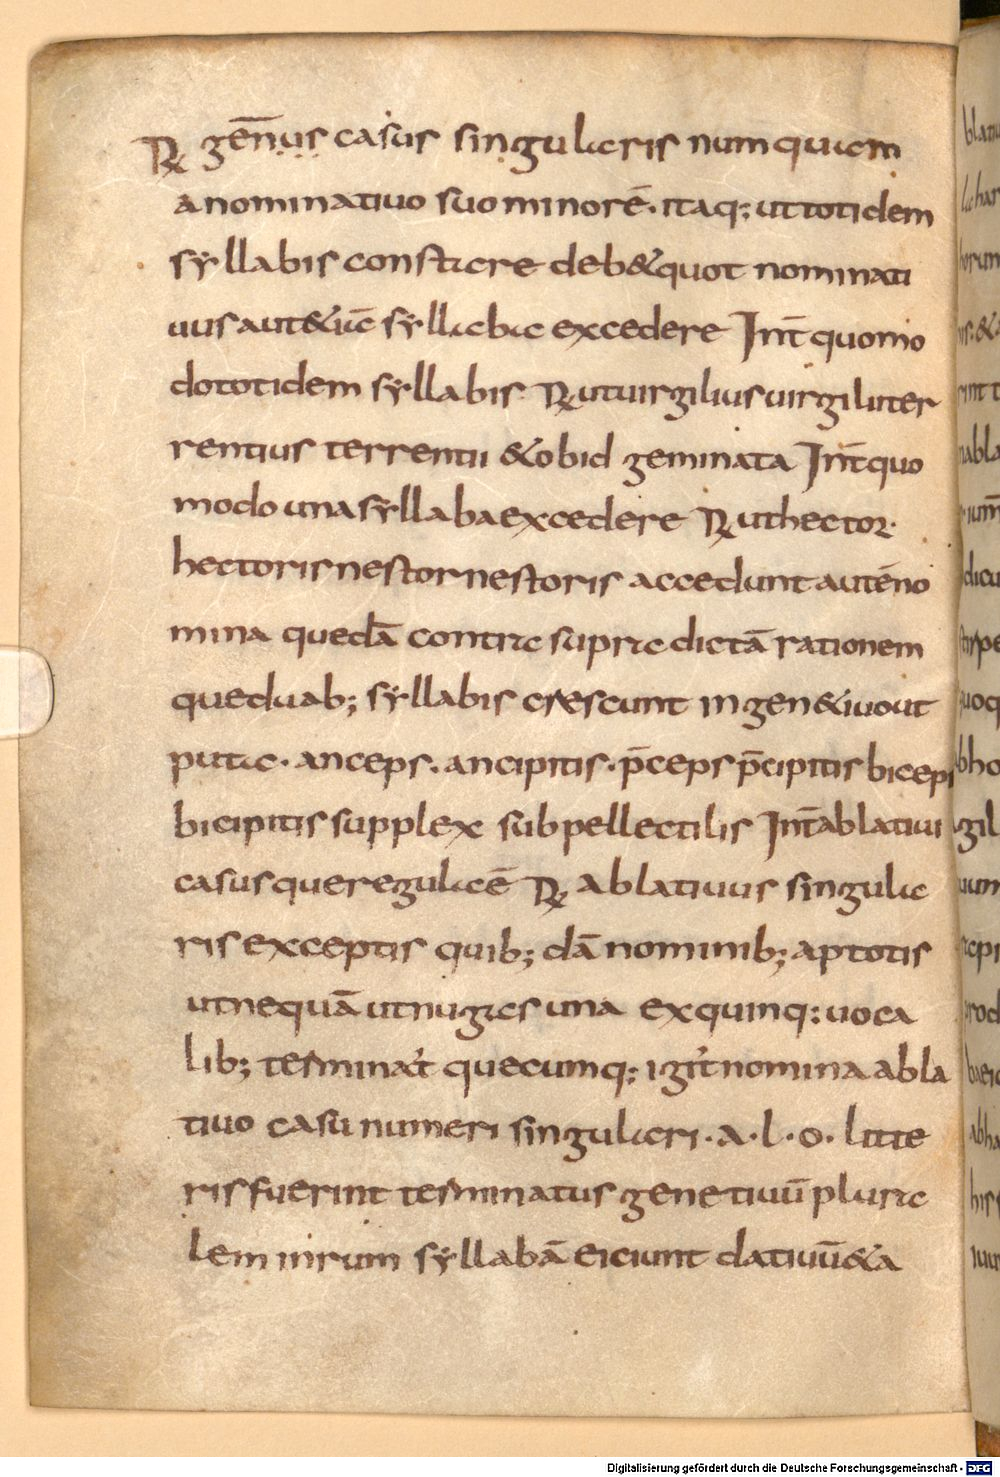 R gēnus casus singularis numquam
a nominatiuo suo minor ē. itaq; ut totidem
syllabis constare deb& quot nominati
uus aut & uā syllaba excedere Int̄ quomo
do totidem syllabis. R ut uirgilius uirgilii ter
rentius terrentii & ob id geminata Int̄ quo
modo una syllaba excedere R ut hector.
hectoris nestor nestoris accedunt autē no
mina quedā contra supra dictā rationem
que duab; syllabis crescunt in gen&iuo ut
puta. anceps. ancipitis. p̄ceps p̄cipitis biceps
bicipitis supplex subpellectilis Int̄ ablatiui
casus que regula ē R Ablatiuus singula
ris exceptis quib;dā nominib; aptotis
ut nequā ut nugas una ex quinq; uoca
lib; terminat̄ quecumq; igit̄ nomina abla
tiuo casu numeri singulari. a. l. o. litte
ris fuerint terminatus genetiuū plura
lem in rum syllabā eiciunt datiuū & a
Digitalisierung gefördert durch die Deutsche Forschungsgemeinschaft - DFG